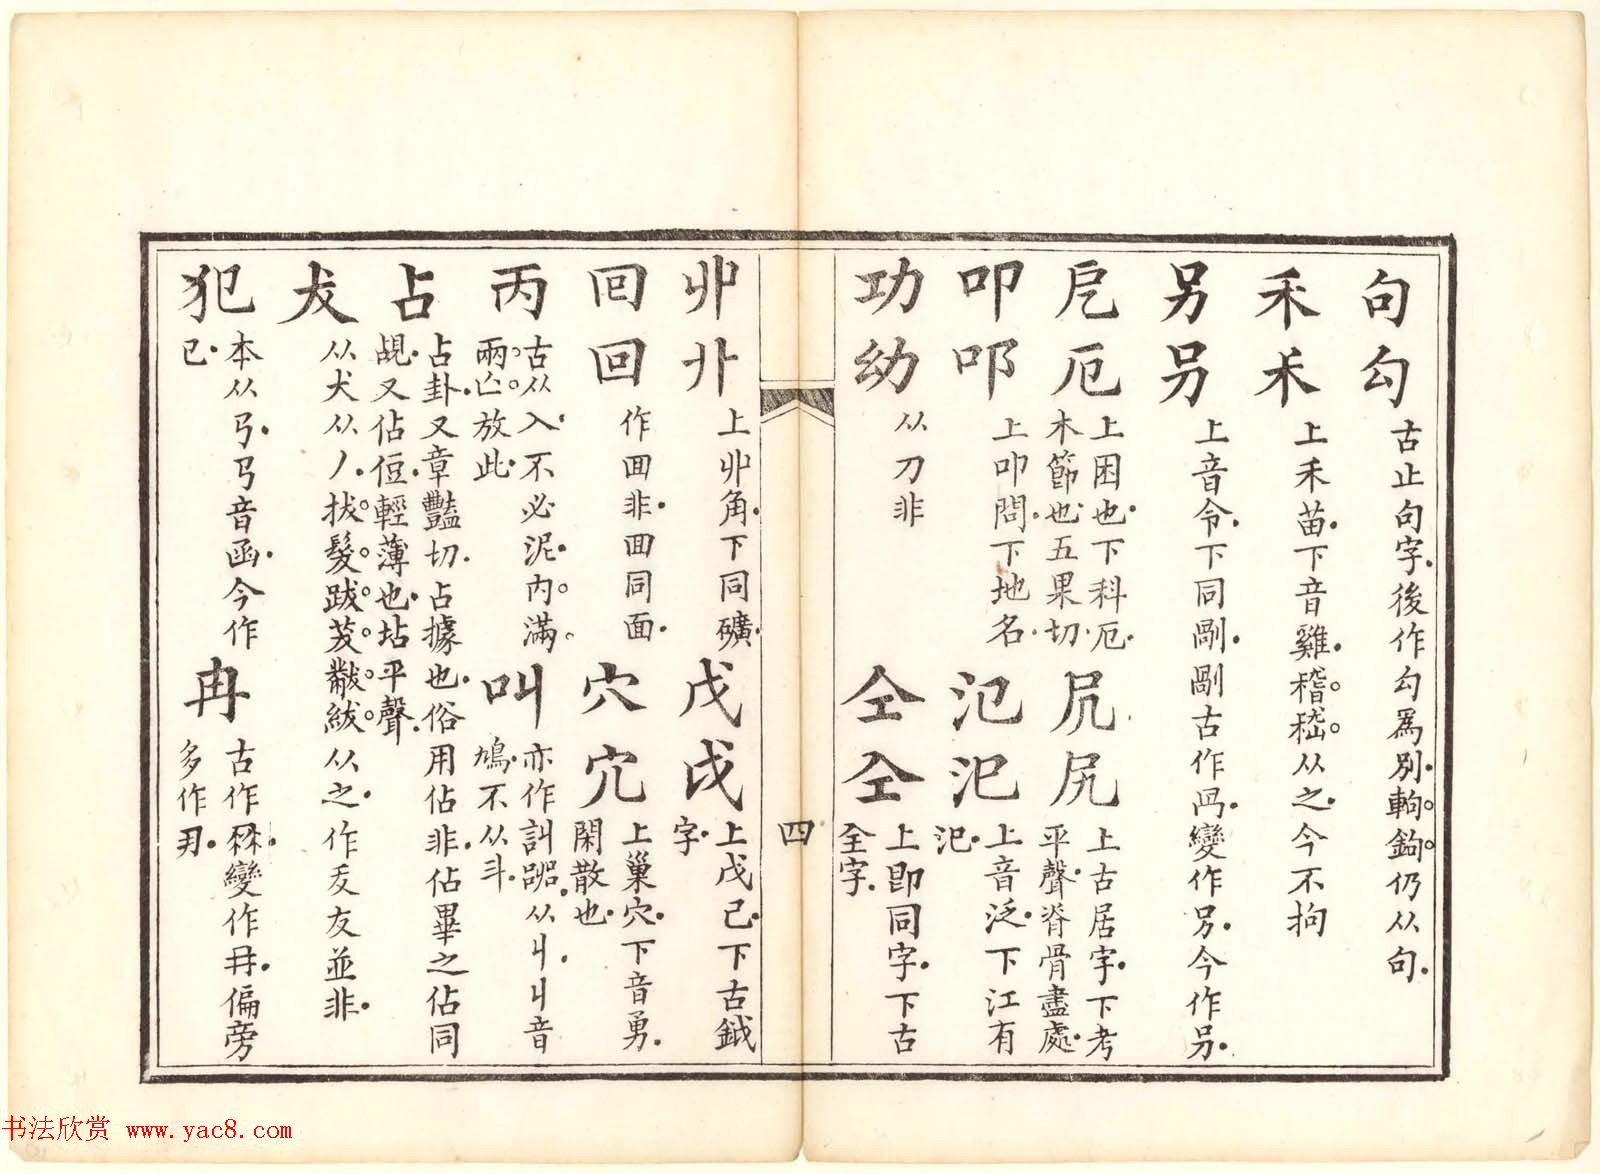 句勾 古止句字後作勾爲別軥鉤仍从句
禾𥝌 上禾苗下音雞稽嵇从之今不拘
另叧 上音令下同剮剮古作冎變作叧今作另
卮厄 上困也下科厄木節也五果切
尻尻 上古居字下考平聲脊骨盡處
叩 上叩問下地名
氾汜 上音泛下江有汜
功㓜 从刀非
仝仝 上即同字下古全字
丱卝 上丱角下同礦
戊戉 上戊己下古鉞字
回囬 作囬非囬同面
穴宂 上巢穴下音勇閑散也
丙 古从入不必泥內滿兩亾放此
叫 亦作訆㗊从丩丩音鳩不从斗
占 占卦又章豔切占據也俗用佔非佔畢之佔同覘又佔侸輕薄也坫平聲
犮 从犬从丿拔髮跋茇黻紱从之作友並非
犯 本从𢎘𢎘音函今作㔾
冉 古作冄變作冉偏旁多作冄
四
书法欣赏 www.yac8.com